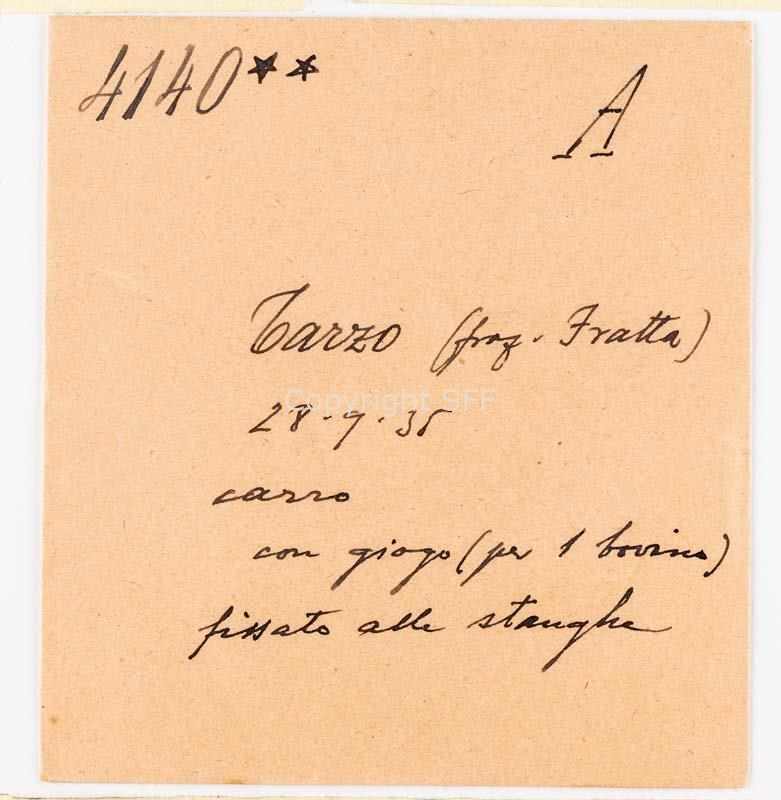 4140** A
Tarzo (fraz. Fratta)
Copyright SFF
28.9.35
carro
con giogo (per 1 bovino)
fissato alle stanghe